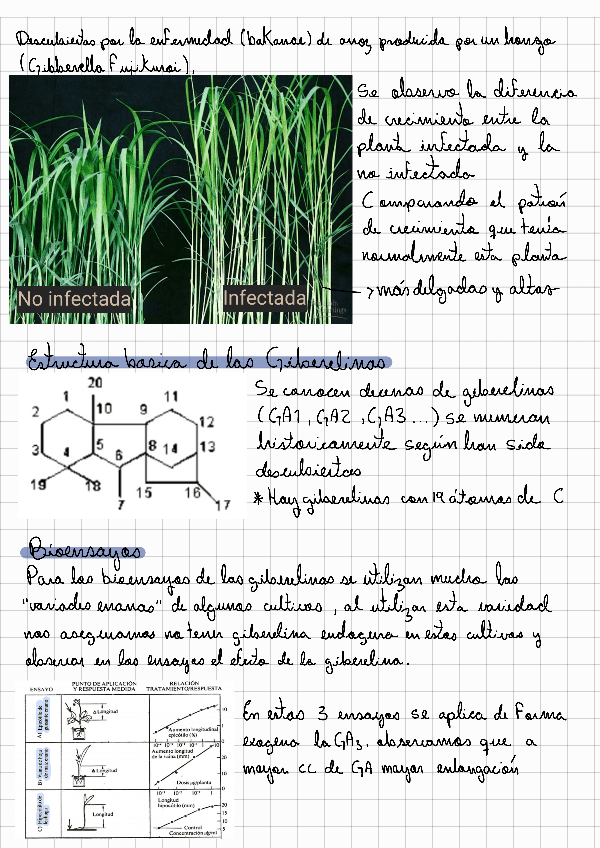 Descubiertas por la enfermedad (bakanae) de arroz producida por un hongo
(Gibberella Fujikuroi).
Se observo la diferencia
de crecimiento entre la
planta infectada y la
no infectada
Comparando el patrón
de crecimiento que tenía
normalmente esta planta
→ más delgadas y altas
No infectada
Infectada
Estructura basica de las Giberelinas
20
1
11
2
10
9
12
3
4
5
8
14
13
6
19
18
15
16
7
17
Se conocen decenas de giberelinas
(GA1, GA2, GA3...) se numeran
historicamente según han sido
descubiertas
* Hay giberelinas con 19 átomos de C
Bioensayos
Para los bioensayos de las giberelinas se utilizan mucho las
"variades enanas" de algunos cultivos, al utilizar esta variedad
nos aseguramos no tener giberelina endogena en estos cultivos y
observar en los ensayos el efecto de la giberelina.
ENSAYO
PUNTO DE APLICACIÓN
Y RESPUESTA MEDIDA
RELACIÓN
TRATAMIENTO/RESPUESTA
Δ Longitud
Aumento longitudinal
epicótilo (%)
Δ Longitud
Aumento longitud
de la vaina (mm)
Dosis µg/planta
Longitud
Longitud
hipocótilo (mm)
Control
Concentración µg/ml
En estos 3 ensayos se aplica de Forma
exogena la GA3, observamos que a
mayor cc de GA mayor enlongación